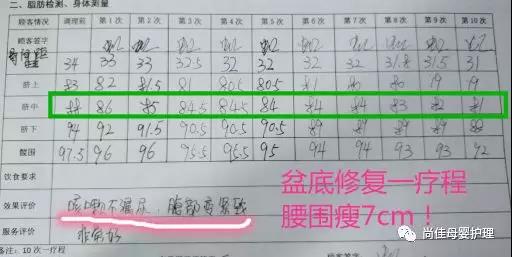 二、脂肪检测、身体测量
顾客情况 调理前 第1次 第2次 第3次 第4次 第5次 第6次 第7次 第8次 第9次 第10次
顾客签字
34 33 33 32.5 32 32 32 32 31.8 31.5 31
脐上 83 82 81.5 81 80.5 80.5 81 80 80 79 79
脐中 88 86 85 84.5 84.5 84 84 84 83 82 81
脐下 94 92 91.5 90.5 90.5 90.5 89 89 89 89 88
臀围 97.5 96 96 95.5 95.5 95 94 94 93 93 92
饮食要求
盆底修复一疗程
腰围瘦7cm！
效果评价 咳嗽不漏尿、腹部变紧致
服务评价 非常好
备注：10次一疗程
尚佳母婴护理